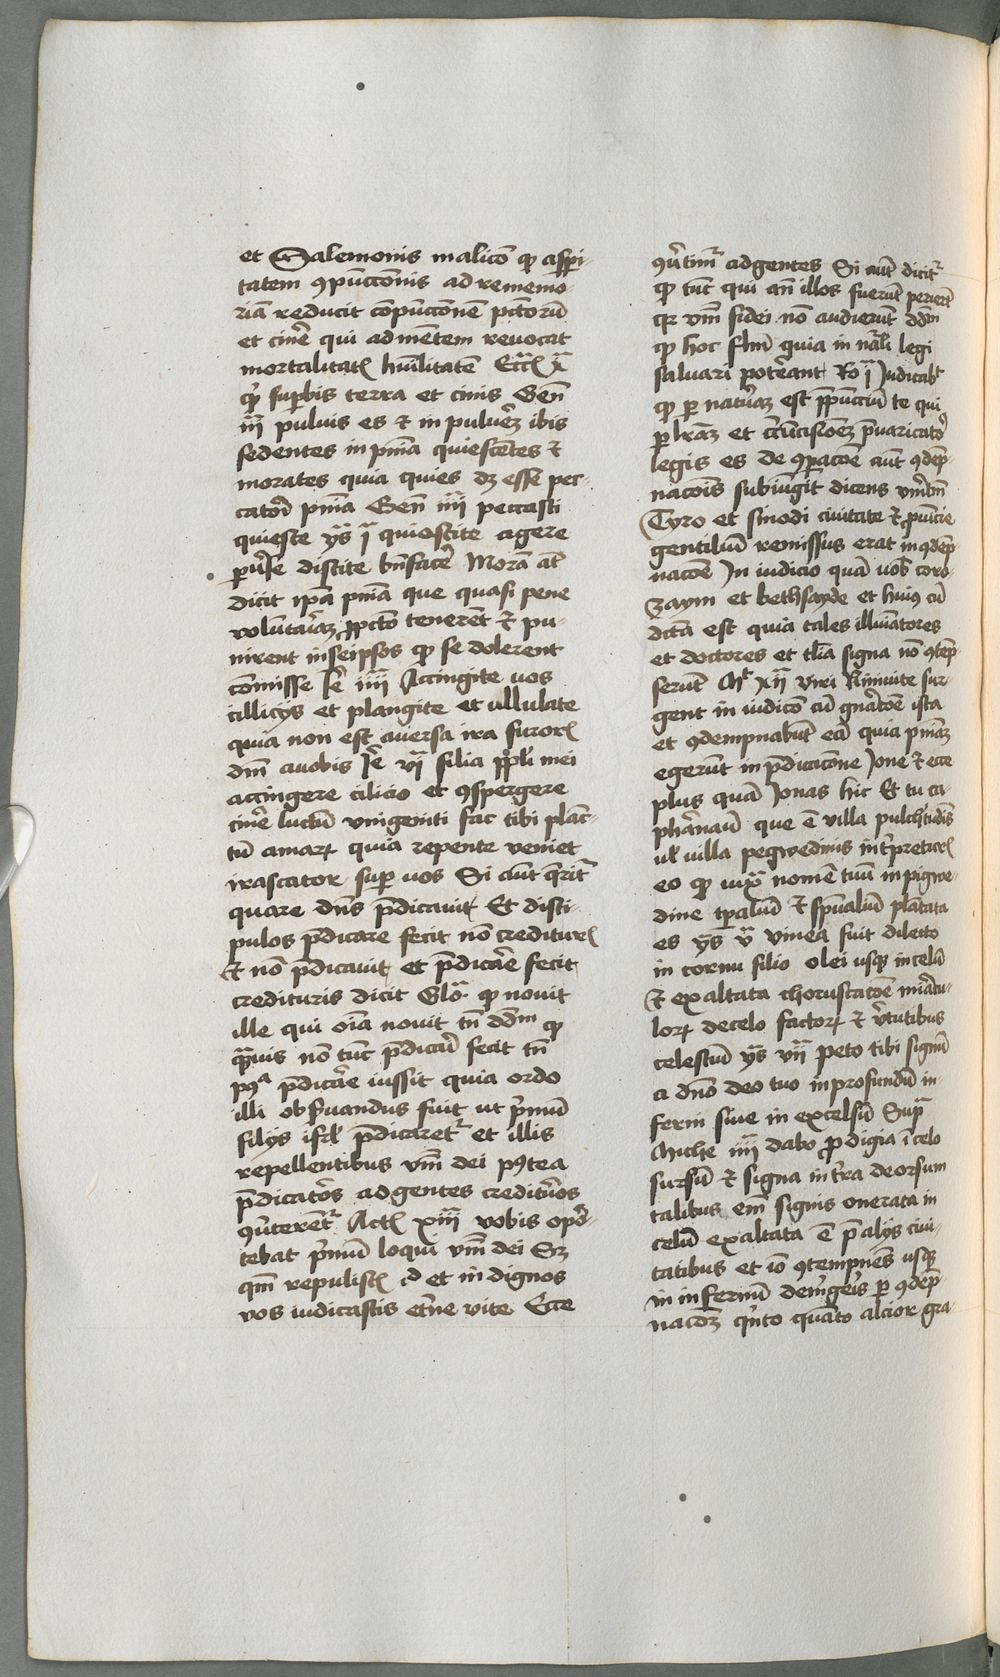 et Salemonis malicõ qp aspi-
tatem ꝯpũccionis ad rememo-
riã reducit compũccionẽ pctorũ
et cinẽ qui ad mẽtem revocat
mortalitatꝫ hũilitatẽ Eccꝫ x̃
qͥ supbis terra et cinis Geñ
iij puluis es ⁊ in puluẽꝫ ibis
sedentes in pnĩa quiescẽtes ⁊
morates quia quies dꝫ esse pec-
catoꝝ pnĩa Geñ iiij peccasti
quiesce ys̃ i quiescite agere
puse discite bñfacẽ Morã at
dicit ip̃a pnĩam que quasi pene
volũtariaꝫ p pctõ tenerẽt ⁊ pu-
nirent in seipsos qp se dolerent
cõmisse Ie iiij Accingite vos
cillicijs et plangite et ullulate
quia non est aversa ira furorꝫ
dñi a uobis Ie vi filia ppl̃i mei
accingere cilicio et ꝯspergere
cinẽ luctũ unigeniti fac tibi plãc-
tũ amarꝫ quia repente veniet
irascator sup vos Si aũt q̃rit͛
quare dñs p̃dicavit Et disci-
pulos p̃dicare fecit nõ crediturꝫ
⁊ nõ p̃dicavit et p̃dicãe fecit
credituris dicit Glo qp novit
ille qui oĩa novit tñ dd̃m qp
q̃uis nõ tũc p̃dicãi fecit tñ
p9ᵃ p̃dicãe iussit quia ordo
illi obs̃uandus fuit ut p̃mũ
filijs isrl̃ p̃dicaret͛ et illis
repellentibus v̄m dei p9tea
p̃dicatões ad gentes creditũos
ꝯũterent͛ Actꝫ xiij vobis opõ-
tebat p̃mũ loqui v̄m dei Sꝫ
qm̃ repulistꝫ id et indignos
vos iudicastis et̃ne vite Ecce
ꝯũtim͛ ad gentes Si aũt dicit͛
qp tũc qui añ illos fuerũt perierũt
qꝫ v̄m fidei nõ audierũt dd̃m
qp hoc fl̃m quia in nãli legi
salvari poterant Ro ij Iudicabt
qp p natũaꝫ est p̃puciũ te qui
p lr̃aꝫ et circũcisionẽꝫ p̃varicator
legis es de ꝯpacõe aũt ꝯdẽp-
nacõis subiũgit dicens v̄mtñ
Tyro et sinodi civitate ⁊ puĩcie
gentiliũ remissus erat in ꝯdẽp
nacõe In iudicio quã vob coro-
zaym et bethsayde et huiꝯ cũ
dictã est quia tales illuĩatores
et doctores et tl̃ia signa nõ ꝯtẽp-
serũt Mt xij viri Ninivite sur-
gent in iudiciõ cũ gñacõe ista
et ꝯdempnabũt eã quia pnĩaꝫ
egerũt in p̃dicacione Ione ⁊ ecce
plus quã Ionas hic Et tu ca-
pharnaũ que ẽ villa pulchritudĩs
ul villa pegwedinis int̃pretaturꝫ
eo qp iuxᵃ nomẽ tuũ in pigwe-
dine tp̃aliũ ⁊ sp̃ualiũ plãtata
es ys̃ v̄ vinea fuit dilecto
in cornu filio olei usqꝫ in celũ
⁊ exaltata choruscacõe mirãcu-
lorꝫ de celo factorꝫ ⁊ v̄tutibus
celestiũ ys̃ vij peto tibi signũ
a dño deo tuo in profundũ in-
ferni sive in excelsũ Supᵃ
Michee iiij dabo prodigia ĩ celo
sursũ ⁊ signa in t̃ra deorsum
talibus em̃ signis onerata in
celũ exaltata ẽ p̃ alijs ciui-
tatibus et iõ ꝯtempnẽs usqꝫ
in infernũ demg̃eris p ꝯdẽp
nacõꝫ q̃nto quãto alcior gra-